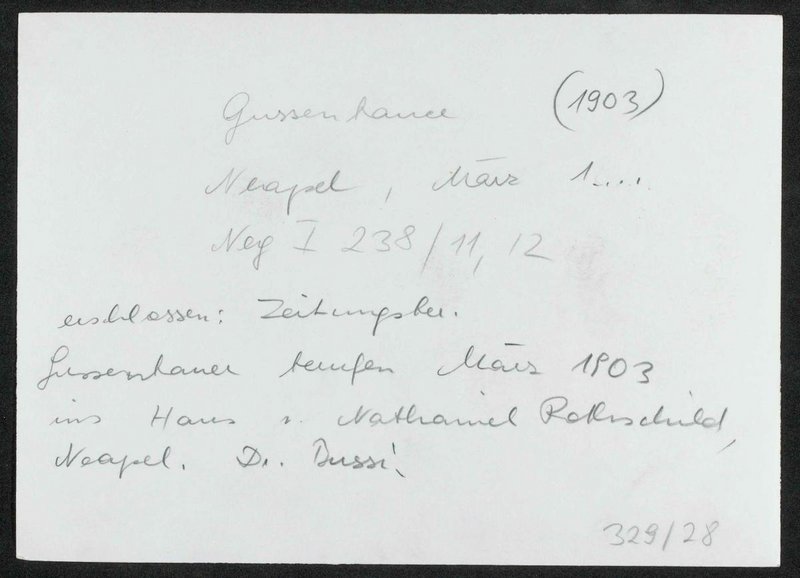 Gussenbauer (1903)
Neapel, März 1....
Neg I 238/11, 12
erschlossen: Zeitungsber.
Gussenbauer berufen März 1903
ins Haus v. Nathaniel Rothschild,
Neapel. Dr. Bussi
329/28